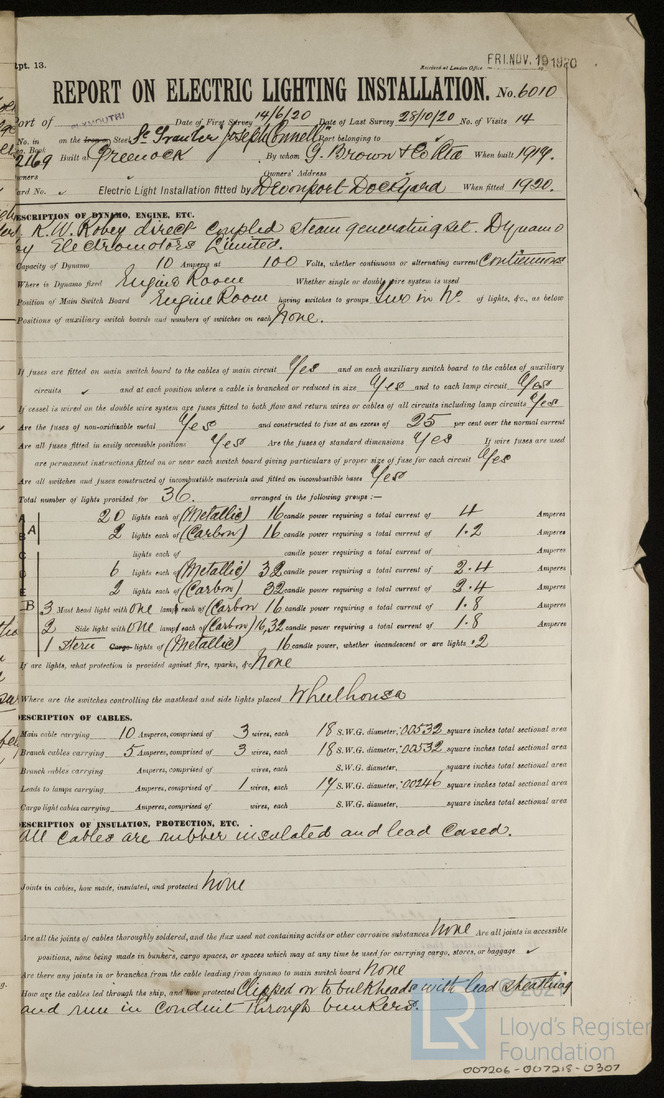 Rpt. 13.
Received at London Office FRI. NOV. 19 1920
REPORT ON ELECTRIC LIGHTING INSTALLATION. No. 6010
Port of PLYMOUTH Date of First Survey 14/6/20 Date of Last Survey 28/10/20 No. of Visits 14
No. in on the Iron or Steel Sc Trawler "Joseph Connell" Port belonging to
Reg. Book
2169 Built at Greenock By whom G. Brown & Co Ltd When built 1919.
Owners Owners' Address
Yard No. Electric Light Installation fitted by Devonport Dockyard When fitted 1920.
DESCRIPTION OF DYNAMO, ENGINE, ETC.
K.W. Robey direct coupled steam generating set. Dynamo
by Electromotors Limited.
Capacity of Dynamo 10 Amperes at 100 Volts, whether continuous or alternating current Continuous
Where is Dynamo fixed Engine Room Whether single or double wire system is used
Position of Main Switch Board Engine Room having switches to groups Two in No. of lights, &c., as below
Positions of auxiliary switch boards and numbers of switches on each None.
If fuses are fitted on main switch board to the cables of main circuit Yes and on each auxiliary switch board to the cables of auxiliary
circuits ✓ and at each position where a cable is branched or reduced in size Yes and to each lamp circuit Yes
If vessel is wired on the double wire system are fuses fitted to both flow and return wires or cables of all circuits including lamp circuits Yes
Are the fuses of non-oxidizable metal Yes and constructed to fuse at an excess of 25 per cent over the normal current
Are all fuses fitted in easily accessible positions Yes Are the fuses of standard dimensions Yes If wire fuses are used
are permanent instructions fitted on or near each switch board giving particulars of proper size of fuse for each circuit Yes
Are all switches and fuses constructed of incombustible materials and fitted on incombustible bases Yes
Total number of lights provided for 36. arranged in the following groups :—
A 20 lights each of (Metallic) 16 candle power requiring a total current of 4 Amperes
B A 2 lights each of (Carbon) 16 candle power requiring a total current of 1.2 Amperes
C lights each of candle power requiring a total current of Amperes
D 6 lights each of (Metallic) 32 candle power requiring a total current of 2.4 Amperes
E 2 lights each of (Carbon) 32 candle power requiring a total current of 2.4 Amperes
B 3 Mast head light with one lamp each of (Carbon 16 candle power requiring a total current of 1.8 Amperes
2 Side light with one lamp each of (Carbon) 16,32 candle power requiring a total current of 1.8 Amperes
1 Stern Cargo lights of (Metallic) 16 candle power, whether incandescent or arc lights .2
If arc lights, what protection is provided against fire, sparks, &c. None
Where are the switches controlling the masthead and side lights placed Wheelhouse
DESCRIPTION OF CABLES.
Main cable carrying 10 Amperes, comprised of 3 wires, each 18 S.W.G. diameter, .00532 square inches total sectional area
Branch cables carrying 5 Amperes, comprised of 3 wires, each 18 S.W.G. diameter, .00532 square inches total sectional area
Branch cables carrying Amperes, comprised of wires, each S.W.G. diameter, square inches total sectional area
Leads to lamps carrying Amperes, comprised of 1 wires, each 17 S.W.G. diameter, .00246 square inches total sectional area
Cargo light cables carrying Amperes, comprised of wires, each S.W.G. diameter, square inches total sectional area
DESCRIPTION OF INSULATION, PROTECTION, ETC.
All cables are rubber insulated and lead cased.
Joints in cables, how made, insulated, and protected None
Are all the joints of cables thoroughly soldered, and the flux used not containing acids or other corrosive substances None Are all joints in accessible
positions, none being made in bunkers, cargo spaces, or spaces which may at any time be used for carrying cargo, stores, or baggage ✓
Are there any joints in or branches from the cable leading from dynamo to main switch board None
How are the cables led through the ship, and how protected Clipped on to bulkheads with lead sheathing
and run in conduit through bunkers.
LR
Lloyd's Register
Foundation
007206-007215-0307